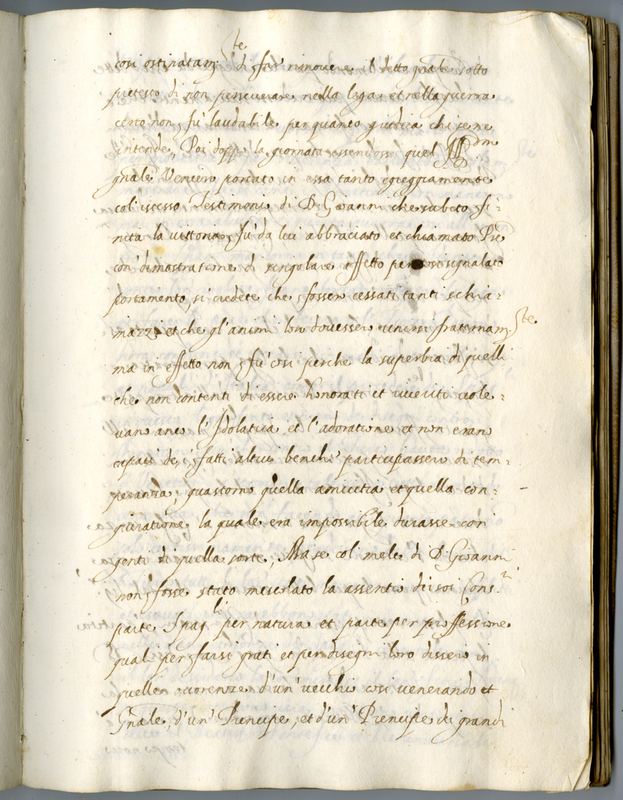 così ostinatam.te di far rinovere il detto gnale sotto
pretesto di non perseverare nella lega et nella guerra
certo non fù laudabile per quanto giudica chi se ne
intende, Poi doppo la giornata essendosi quel Ill.mo
gnale Veniero portato in essa tanto egreggiamente
col istesso Testimonio di D. Giovanni che subito fi-
nita la vittoria, fù da lui abbracciato et chiamato Pre
con dimostratione di singolare effetto per così signalato
portamento, si credete che fossero cessati tanti schia-
mazzi et che gl'animi loro dovessero unirsi fraternam.te
ma in effetto non fù così perche la superbia di quelli
che non contenti di essere honorati et riveriti vole-
vano anco l'Idolatria et l'adoratione et non erano
capaci de i fatti altrui benche participassero di tem-
peranza, guastorno quella amicitia et quella con-
giuratione la quale era impossibile durasse con
gente di quella sorte, Ma se col mele di D. Giovanni
non fosse stato mescolato la assentio di soi Cons.ri
parte Spag.li per natura et parte per professione
quali per farsi grati et per disegni loro dissero in
quelle occorenze d'un vecchio così venerando et
Gnale, d'un Principe, et d'un Principe di grandi